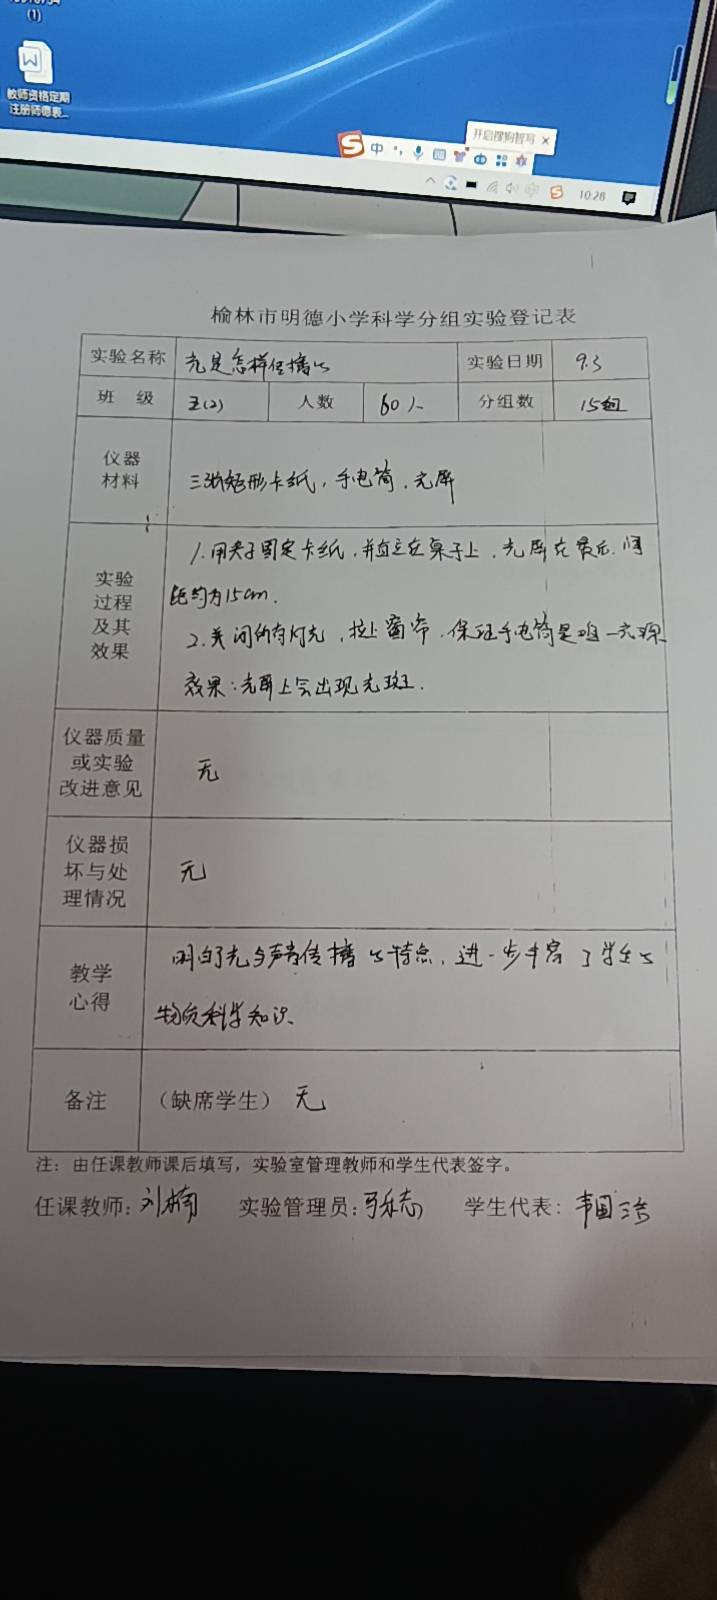 (1)
教师资格定期
注册师德表...
开启搜狗智写 ×
中
10:28
榆林市明德小学科学分组实验登记表
实验名称 光是怎样传播的 实验日期 9.3
班 级 五(2) 人数 60人 分组数 15组
仪器
材料
三张矩形卡纸,手电筒、光屏
实验
过程
及其
效果
1.用夹子固定卡纸,并直立在桌子上,光屏在最后.间
距约为15cm.
2.关闭所有灯光,拉上窗帘.保证手电筒是唯一光源
效果:光屏上会出现光斑.
仪器质量
或实验
改进意见
无
仪器损
坏与处
理情况
无
教学
心得
明白了光与声音传播的特点,进一步丰富了学生的
物质科学知识.
备注 (缺席学生) 无
注:由任课教师课后填写,实验室管理教师和学生代表签字。
任课教师:刘楠 实验管理员: 学生代表: